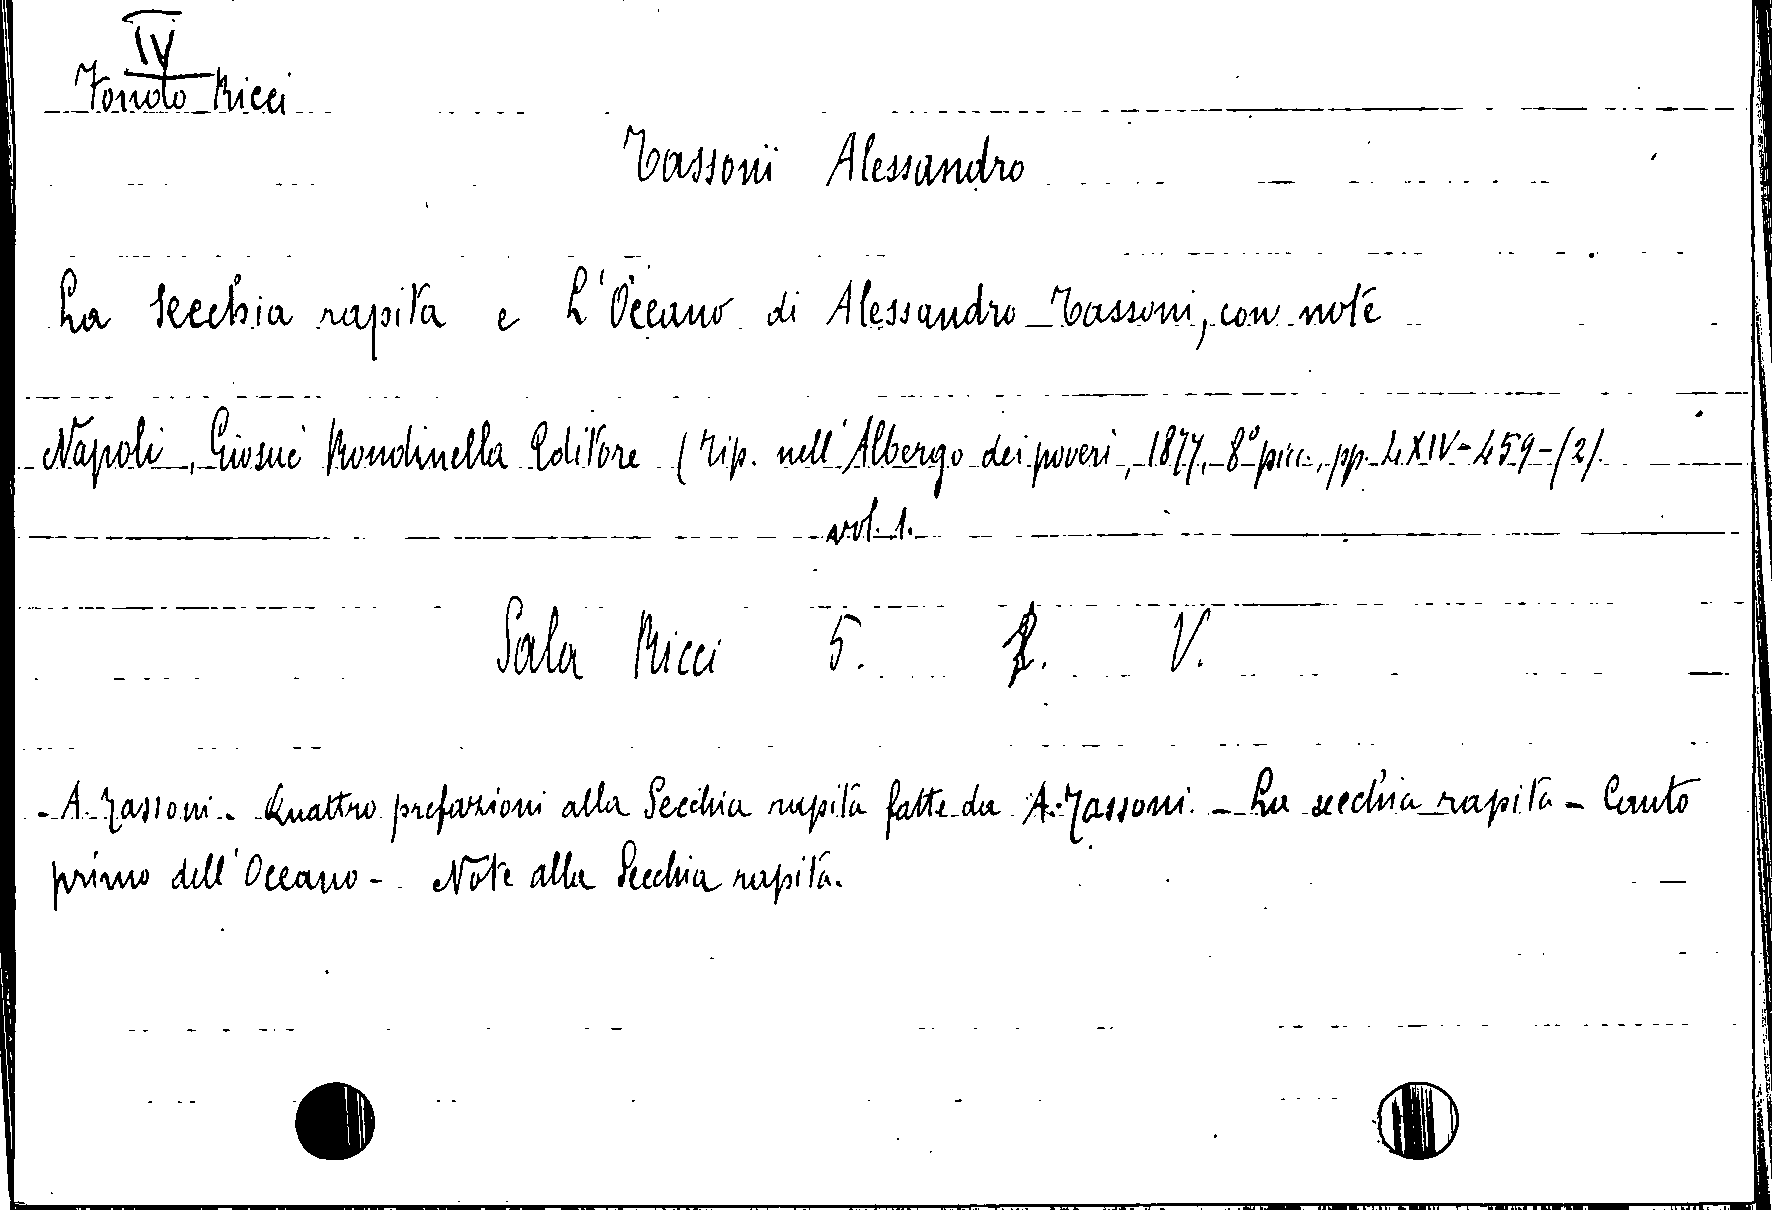 IV
Fondo Ricci
Tassoni Alessandro
La Secchia rapita e L'Oceano di Alessandro Tassoni, con note
Napoli, Giosuè Rondinella Editore (Tip. nell'Albergo dei poveri, 1877, 8° picc., pp. LXIV-459-(2).
vol. 1.
Sala Ricci 5. V.
- A. Tassoni. Quattro prefazioni alla Secchia rapita fatte da A. Tassoni. - La secchia rapita - Canto
primo dell'Oceano - Note alla Secchia rapita.